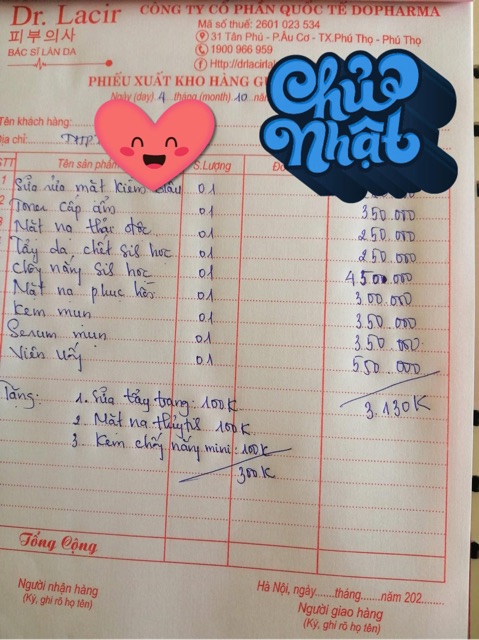 Dr. Lacir
피부의사
BÁC SĨ LÀN DA
CÔNG TY CỔ PHẦN QUỐC TẾ DOPHARMA
Mã số thuế: 2601 023 534
31 Tân Phú - P.Âu Cơ - TX.Phú Thọ - Phú Thọ
1900 966 959
Http://drlacirla
PHIẾU XUẤT KHO HÀNG
Ngày (day). 4 .tháng (month). 10 .
Chủ Nhật
Tên khách hàng:
Địa chỉ:
STT Tên sản phẩm S.Lượng
1 Sữa rửa mặt kiềm dầu 01
2 Toner cấp ẩm 01 350.000
3 Mặt nạ thải độc 01 250.000
Tẩy da chết sih học 01 250.000
Chống nắng sih học 01 4500.000
Mặt nạ phục hồi 01 300.000
Kem mụn 01 350.000
Serum mụn 01 350.000
Viên uống 01 550.000
3.130K
Tặng: 1. Sữa tẩy trang: 100K
2 Mặt nạ 100K
3 Kem chống nắng mini: 100K
300K
Tổng Cộng
Hà Nội, ngày......tháng......năm 202...
Người nhận hàng
(Ký, ghi rõ họ tên)
Người giao hàng
(Ký, ghi rõ họ tên)